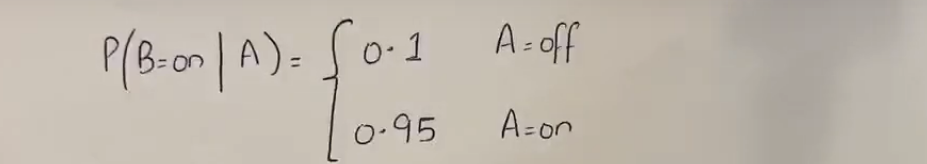 P(B=on | A) = { 0.1 A=off
0.95 A=on